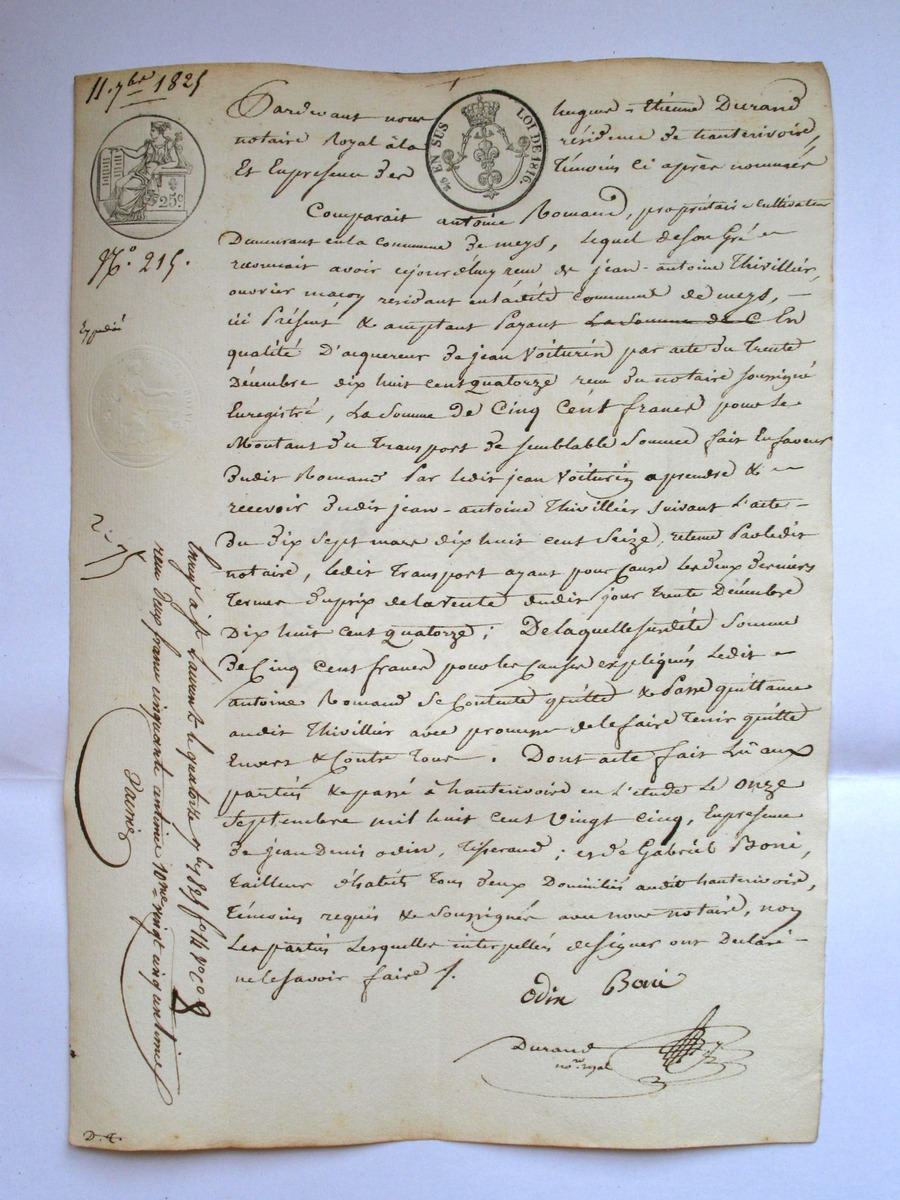 11. 7bre 1825
25c
EN SUS
LOI DE 1816.
N.o 215.
Expédié
Pardevant nous hugues = Etienne Durand
notaire Royal à la résidence de hauterivoire,
Et Enpresence des témoins ci après nommés
Comparait antoine Romand, propriétaire cultivateur
Demeurant en la Commune de meys, lequel de son Gré =
reconnait avoir cejourd'huy reçu de jean-antoine Thivillier,
ouvrier maçon residant en ladite Commune de meys, —
ici Présent & acceptant Payant La Somme de C En
qualité D'acquereur de jean Voiturin par acte du Trente
Décembre dix huit cent quatorze reçu du notaire soussigné
Enregistré, La Somme De Cinq Cent francs pour le
Montant du Transport de semblable Somme fait En faveur
dudit Romand Par ledit jean Voiturin aprendre & =
recevoir dudit jean-antoine Thivillier suivant L'acte -
Du dix sept mars dix huit cent Seize, retenu Parledit
notaire, ledit Transport ayant pour Cause Les deux derniers
Termes duprix delavente dudit jour Trente Décembre
Dix huit cent quatorze; De laquelle susdite Somme
De Cinq cent francs pour les Causes expliqués ledit =
antoine Romand Se Contente quitte & Passe quittance
audit Thivillier avec promesse de le faire Tenir quitte
Envers & Contre Tous. Dont acte fait Lû aux
partiés & passé à hauterivoire en L'etude Le onze
Septembre mil huit cent vingt cinq, Enpresence
De jean Denis odin, Tisserand; et de Gabriel Boni,
Tailleur d'habits Tous deux Domiciliés audit hauterivoire,
Témoins requis & Soussignés avec nous notaire, non
Les partiés Lesquelles interpellés designer ont Declaré -
ne le savoir faire ./.
odin Boni
Durand
no.re royal
Enreg.é à St Laurent le quatorze 7bre 1825 fo 118 Vo C 8
reçu deux francs cinquante centimes 10me vingt cinq centimes
D. E.